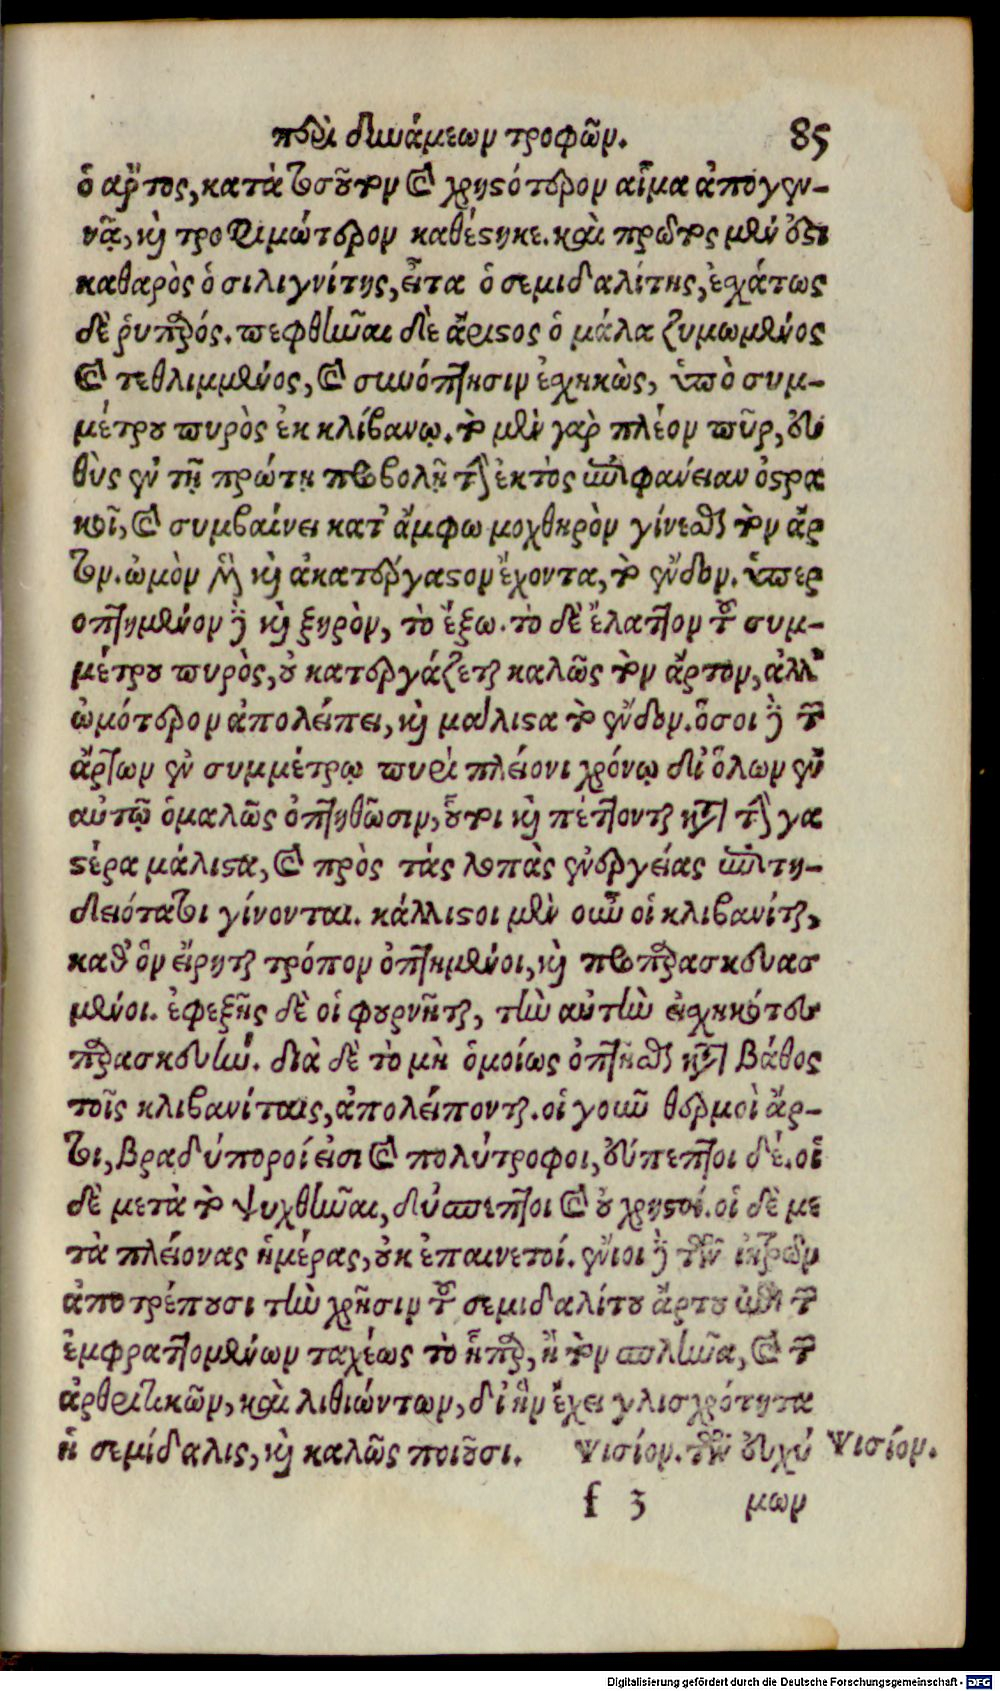 περὶ δυνάμεων τροφῶν. 85
ὁ ἄρτος, κατὰ τοσοῦτον καὶ χρηστότερον αἷμα ἀπογεν-
νᾷ, καὶ τροφιμώτερον καθέστηκε. καὶ πρῶτος μέν ἐστι
καθαρὸς ὁ σιλιγνίτης, εἶτα ὁ σεμιδαλίτης, ἐσχάτως
δὲ ῥυπαρός. πεφθῆναι δὲ ἄριστος ὁ μάλα ζυμωμένος
καὶ τεθλιμμένος, καὶ συνόπτησιν ἐσχηκὼς, ὑπὸ συμ-
μέτρου πυρὸς ἐκ κλιβάνῳ. τὸ μὲν γὰρ πλέον πῦρ, εὐ
θὺς ἐν τῇ πρώτῃ προβολῇ τὴν ἐκτὸς ἐπιφάνειαν ὀστρα
κοῖ, καὶ συμβαίνει κατ' ἄμφω μοχθηρὸν γίνεσθαι τὸν ἄρ
τον. ὠμὸν μὲν καὶ ἀκατέργαστον ἔχοντα, τὸ ἔνδον. ὑπερ
οπτημένον δὲ καὶ ξηρὸν, τὸ ἔξω. τὸ δὲ ἔλαττον τοῦ συμ-
μέτρου πυρὸς, οὐ κατεργάζεται καλῶς τὸν ἄρτον, ἀλλ'
ὠμότερον ἀπολείπει, καὶ μάλιστα τὸ ἔνδον. ὅσοι δὲ τῶν
ἄρτων ἐν συμμέτρῳ πυρὶ πλείονι χρόνῳ δι' ὅλων ἐν
αὐτῷ ὁμαλῶς ὀπτηθῶσιν, οὗτοι καὶ πέττονται κατὰ τὴν γα
στέρα μάλιστα, καὶ πρὸς τὰς λοιπὰς ἐνεργείας ἐπιτη-
δειότατοι γίνονται. κάλλιστοι μὲν οὖν οἱ κλιβανίται,
καθ' ὃν εἴρηται τρόπον ὀπτημένοι, καὶ προπαρασκευασ
μένοι. ἐφεξῆς δὲ οἱ φουρνῆται, τὴν αὐτὴν εἰσχηκότες
παρασκευήν. διὰ δὲ τὸ μὴ ὁμοίως ὀπτῆσθαι κατὰ βάθος
τοῖς κλιβανίταις, ἀπολείπονται. οἱ γοῦν θερμοὶ ἄρ-
τοι, βραδύποροί εἰσι καὶ πολύτροφοι, εὔπεπτοι δέ. οἱ
δὲ μετὰ τὸ ψυχθῆναι, δύσπεπτοι καὶ οὐ χρηστοί. οἱ δὲ με
τὰ πλείονας ἡμέρας, οὐκ ἐπαινετοί. ἔνιοι δὲ τῶν ἰατρῶν
ἀποτρέπουσι τὴν χρῆσιν τοῦ σεμιδαλίτου ἄρτου ἐπὶ τῶν
ἐμφραττομένων ταχέως τὸ ἧπαρ, ἢ τὸν σπλῆνα, καὶ τῶν
ἀρθριτικῶν, καὶ λιθιώντων, δι' ἣν ἔχει γλισχρότητα
ἡ σεμίδαλις, καὶ καλῶς ποιοῦσι. Ψισίον. τῶν εὐχύ Ψισίον.
f 3 μων
Digitalisierung gefördert durch die Deutsche Forschungsgemeinschaft - DFG